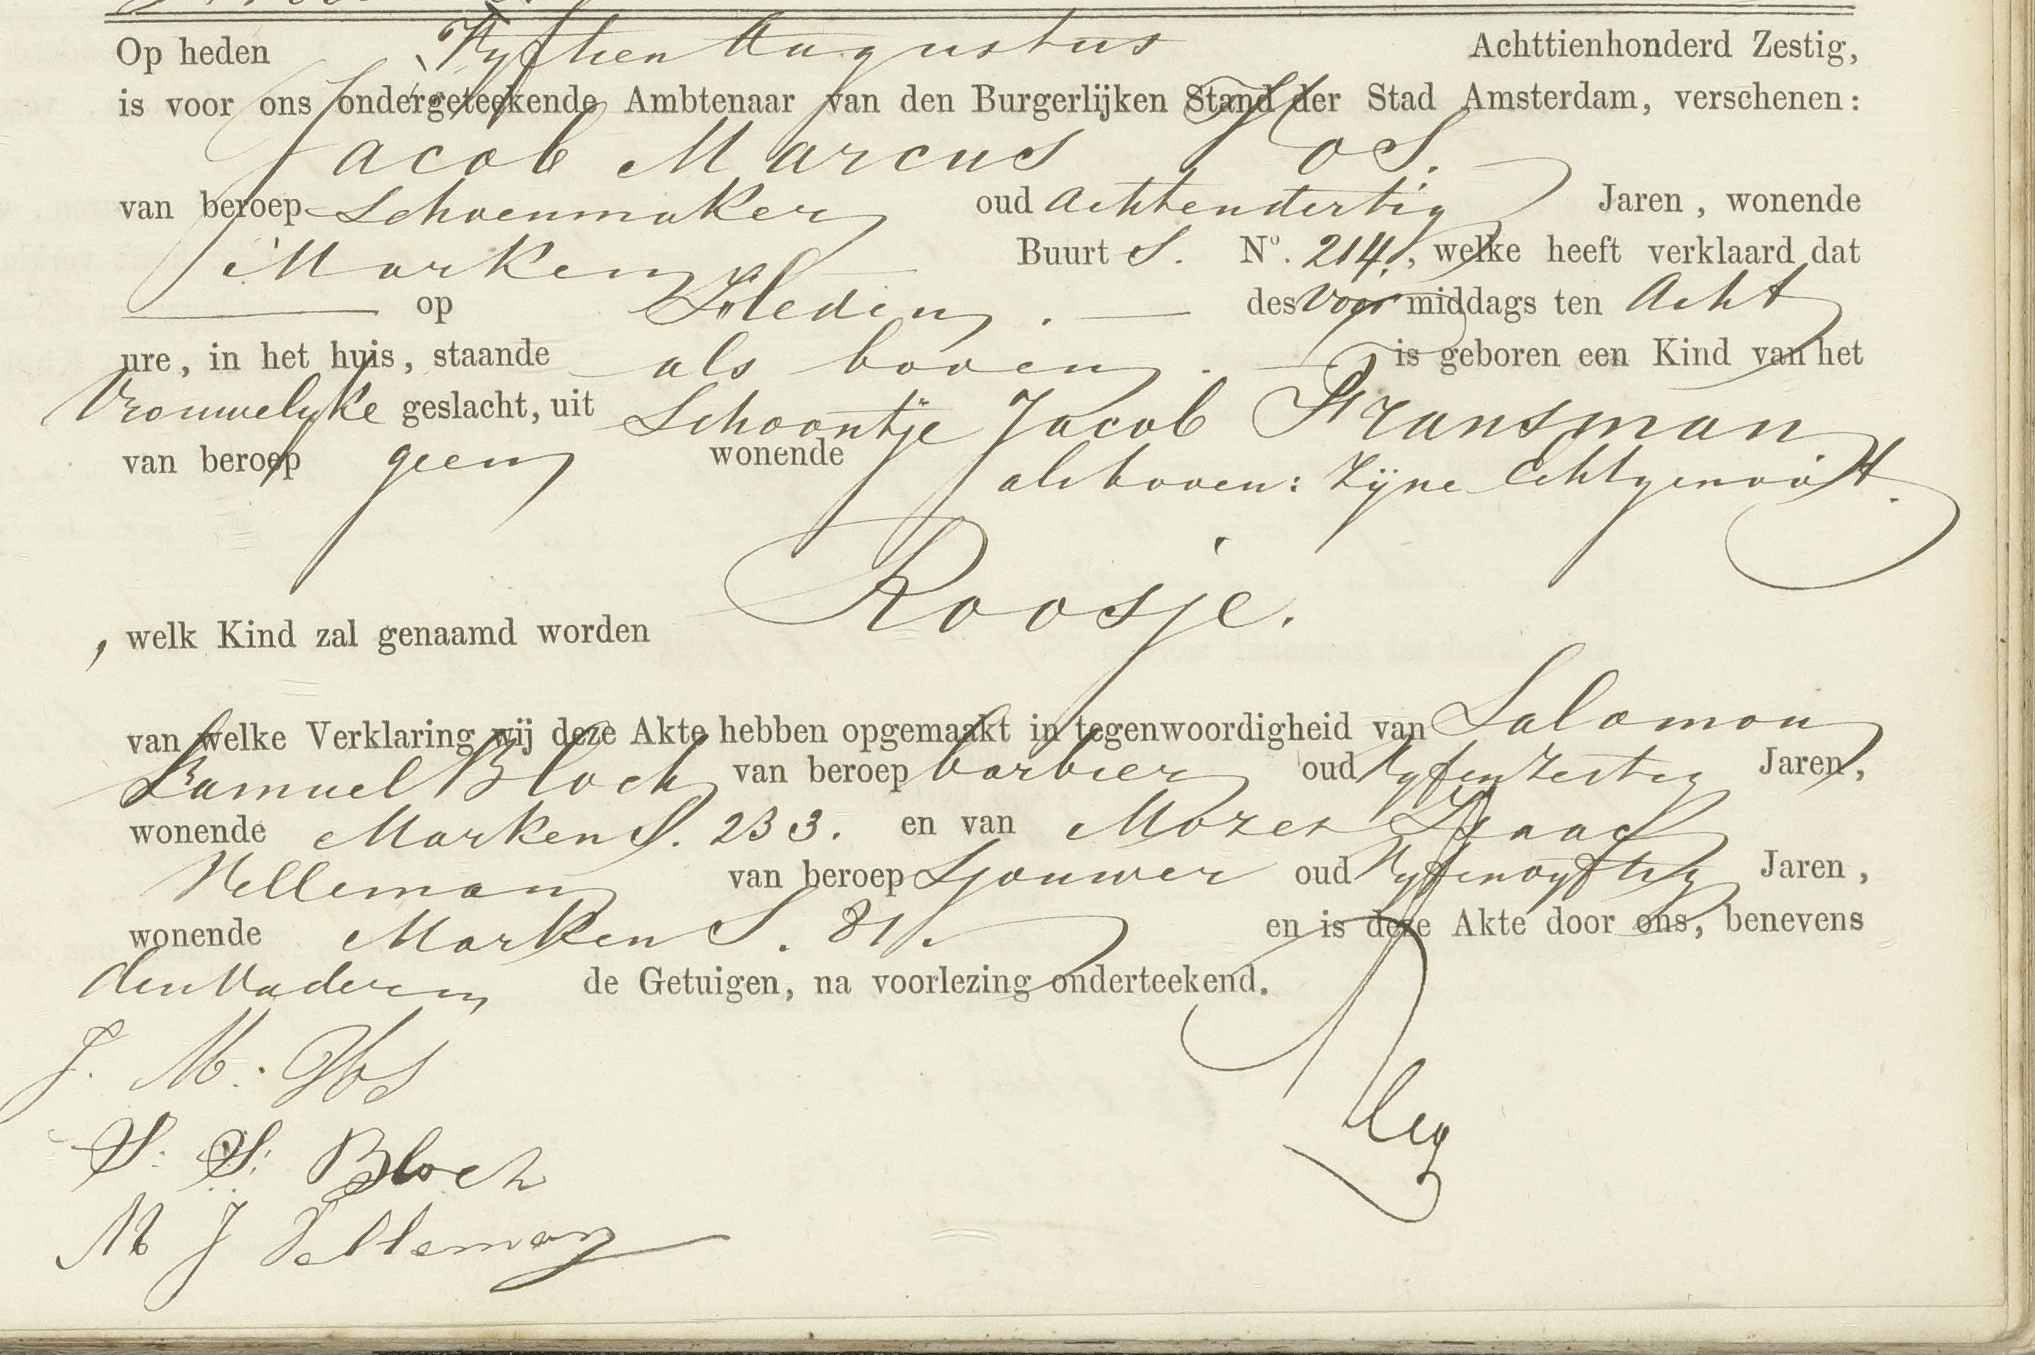 Op heden Vyftien Augustus Achttienhonderd Zestig,
is voor ons ondergeteekende Ambtenaar van den Burgerlijken Stand der Stad Amsterdam, verschenen:
Jacob Marcus Vos.
van beroep Schoenmaker oud Achtendertig Jaren, wonende
Marken Buurt S. No. 214, welke heeft verklaard dat
op Heden. des Voor middags ten Acht
ure, in het huis, staande als boven. is geboren een Kind van het
Vrouwelyke geslacht, uit Schoontje Jacob Fransman
van beroep geen wonende als boven: Zijne Echtgenoot.
, welk Kind zal genaamd worden Roosje.
van welke Verklaring wij deze Akte hebben opgemaakt in tegenwoordigheid van Salomon
Samuel Bloch van beroep barbier oud Vyfenzestig Jaren,
wonende Marken S. 233. en van Mozes Isaac
Velleman van beroep Sjouwer oud Vyfenvyftig Jaren,
wonende Marken S. 81. en is deze Akte door ons, benevens
den Vader en de Getuigen, na voorlezing onderteekend.
J. M. Vos
S. S. Bloch
M J Velleman